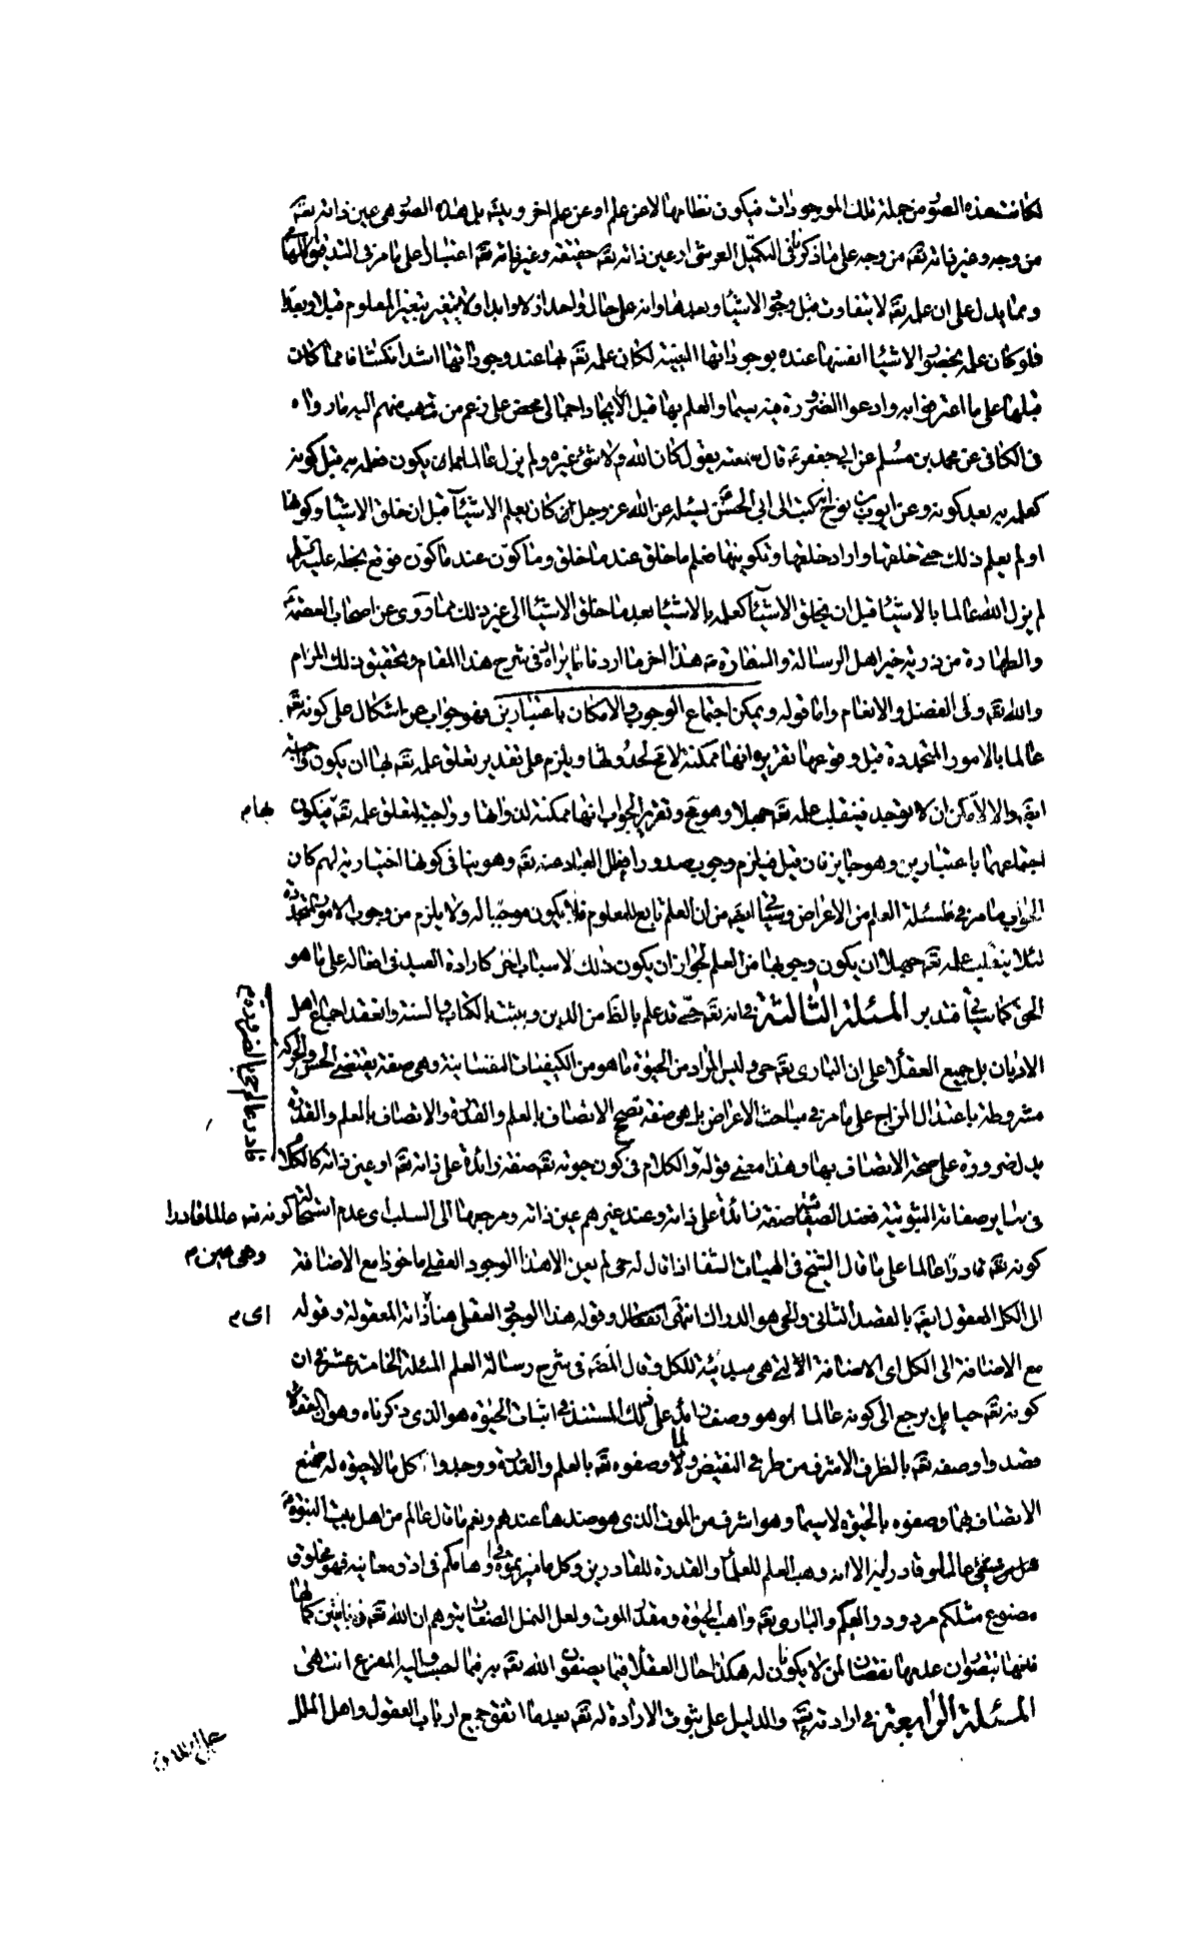 لكانت هذه الصور من جملة تلك الموجودات فيكون نظامها لا عن علم او عن علم اخر وبالجملة بل هذه الصور هي عين ذاته تعه
من وجه وغير ذاته تعه من وجه على ما ذكرنا في التمثيل العرشى او عين ذاته تعه حقيقة وغير ذاته تعه اعتبارا على ما مر في التدقيق
ومما يدل على ان علمه تعه لا يتفاوت قبل وجود الاشياء وبعدها وانه على حالة واحدة ازلا وابدا ولا يتغير بتغير المعلوم قبلا وبعدا
فلو كان علمه بحضور الاشياء انفسها عنده بوجوداتها العينية لكان علمه تعه بها عند وجوداتها اشد انكشافا مما كان
قبلها على ما اعترفوا به وادعوا الضرورة فيه سيما والعلم بها قبل الايجاد اجمالى محض على زعم من ذهب منهم اليه ما رواه
فى الكافى عن محمد بن مسلم عن ابي جعفر ع قال سمعته يقول كان الله ولا شئ غيره ولم يزل عالما بما يكون فعلمه به قبل كونه
كعلمه به بعد كونه وعن ايوب بن نوح انه كتب الى ابي الحسن ع يسئله عن الله عز وجل أكان يعلم الاشياء قبل ان خلق الاشياء وكونها
او لم يعلم ذلك حتى خلقها واراد خلقها وتكوينها فعلم ما خلق عند ما خلق وما كون عند ما كون فوقع بخطه عليه السلم
لم يزل الله عالما بالاشياء قبل ان يخلق الاشياء كعلمه بالاشياء بعد ما خلق الاشياء الى غير ذلك مما روى عن اصحاب العصمة
والطهارة من ذرية خير اهل الرسالة والسفارة ع هذا اخر ما اردنا ايراده فى شرح هذا المقام وتحقيق ذلك المرام
والله تعه ولى الفضل والانعام واما قوله ويمكن اجتماع الوجوب والامكان باعتبارين فهو جواب عن اشكال على كونه تعه
عالما بالامور المتجددة قبل وقوعها تقريره انها ممكنة لا مح لحدوثها ويلزم على تقدير تعلق علمه تعه بها ان يكون واجبة
ايضه والا لامكن ان لا يوجد فينقلب علمه تعه جهلا وهو مح وتقرير الجواب انها ممكنة لذواتها وواجبة لتعلق علمه تعه بها فيكون
اجتماعهما باعتبارين وهو جايز فان قيل فيلزم وجوب صدور افعال العباد عنه تعه وهو ينافى كونها اختيارية لهم كان
الجواب ما مر فى مسئلة العلم من الاعراض وسياتى ايضه من ان العلم تابع للمعلوم فلا يكون موجبا له ولا يلزم من وجوب الامور المتجددة
لئلا ينقلب علمه تعه جهلا ان يكون وجوبها من العلم لجواز ان يكون ذلك لاسباب اخر كارادة العبد فى افعاله على ما هو
الحق كما سياتى فتدبر المسئلة الثالثة فى انه تعه حي قد علم بالظ من الدين وثبت بالكتاب والسنة وانعقد اجماع اهل
الاديان بل جميع العقلاء على ان البارى تعه حى وليس المراد من الحيوة ما هو من الكيفيات النفسانية وهى صفة يقتضى الحس والحركة
مشروطة باعتدال المزاج على ما مر فى مباحث الاعراض بل هو صفة تصحح الاتصاف بالعلم والقدرة والاتصاف بالعلم والقدرة
يدل ضرورة على صحة الاتصاف بها وهذا معنى قوله وكل قادر عالم حى بالضرورة والكلام فى كون حيوته تعه صفة زائدة على ذاته تعه او عين ذاته كالكلام
فى ساير صفاته الثبوتية فعند الصفاتية صفة زائدة على ذاته وعند غيرهم عين ذاته ومرجعها الى السلب اى عدم استحالة كونه تعه عالما قادرا
كونه تعه قادرا عالما على ما قال الشيخ فى الهيات الشفا اذا قال له حى لم يعن الا هذا الوجود العقلى ماخوذا مع الاضافة
الى الكل المعقول ايضه بالقصد الثانى والحى هو الدراك الفعال انتهى وقوله هذا الوجود العقلى هنا اى ذاته المعقولة وقوله
مع الاضافة الى الكل اى الاضافة التى هى مبدئية للكل وقال المصه فى شرح رسالة العلم المسئلة الخامسة عشر فى ان
كونه تعه حيا هل يرجع الى كونه عالما او هو وصف زائد على ذلك المستند فى اثبات الحيوة هو الذى ذكرناه وهو ان العقلاء
قصدوا وصفه تعه بالطرف الاشرف من طرفى النقيض ولما وصفوه تعه بالعلم والقدرة ووجدوا كل ما لا حيوة له ممتنع
الاتصاف بهما وصفوه بالحيوة لاسيما وهو اشرف من الموت الذى هو ضدها عندهم ونعم ما قال عالم من اهل بيت النبوة ع
هل يسمى عالما وقادرا الا انه وهب العلم للعلماء والقدرة للقادرين وكل ما ميزتموه باوهامكم فى ادق معانيه فهو مخلوق
مصنوع مثلكم مردود اليكم والبارى تعه واهب الحيوة ومقدر الموت ولعل النمل الصغار يتوهم ان الله تعه زبانيتين كما لها
فانها تتصور ان عدمها نقصان لمن لا يكونان له هكذا حال العقلاء فيما يصفون الله تعه به فيما احسب واليه المفزع انتهى
المسئلة الرابعة فى ارادته تعه والدليل على ثبوت الارادة له تعه بعد ما اتفق جميع ارباب العقول واهل الملل